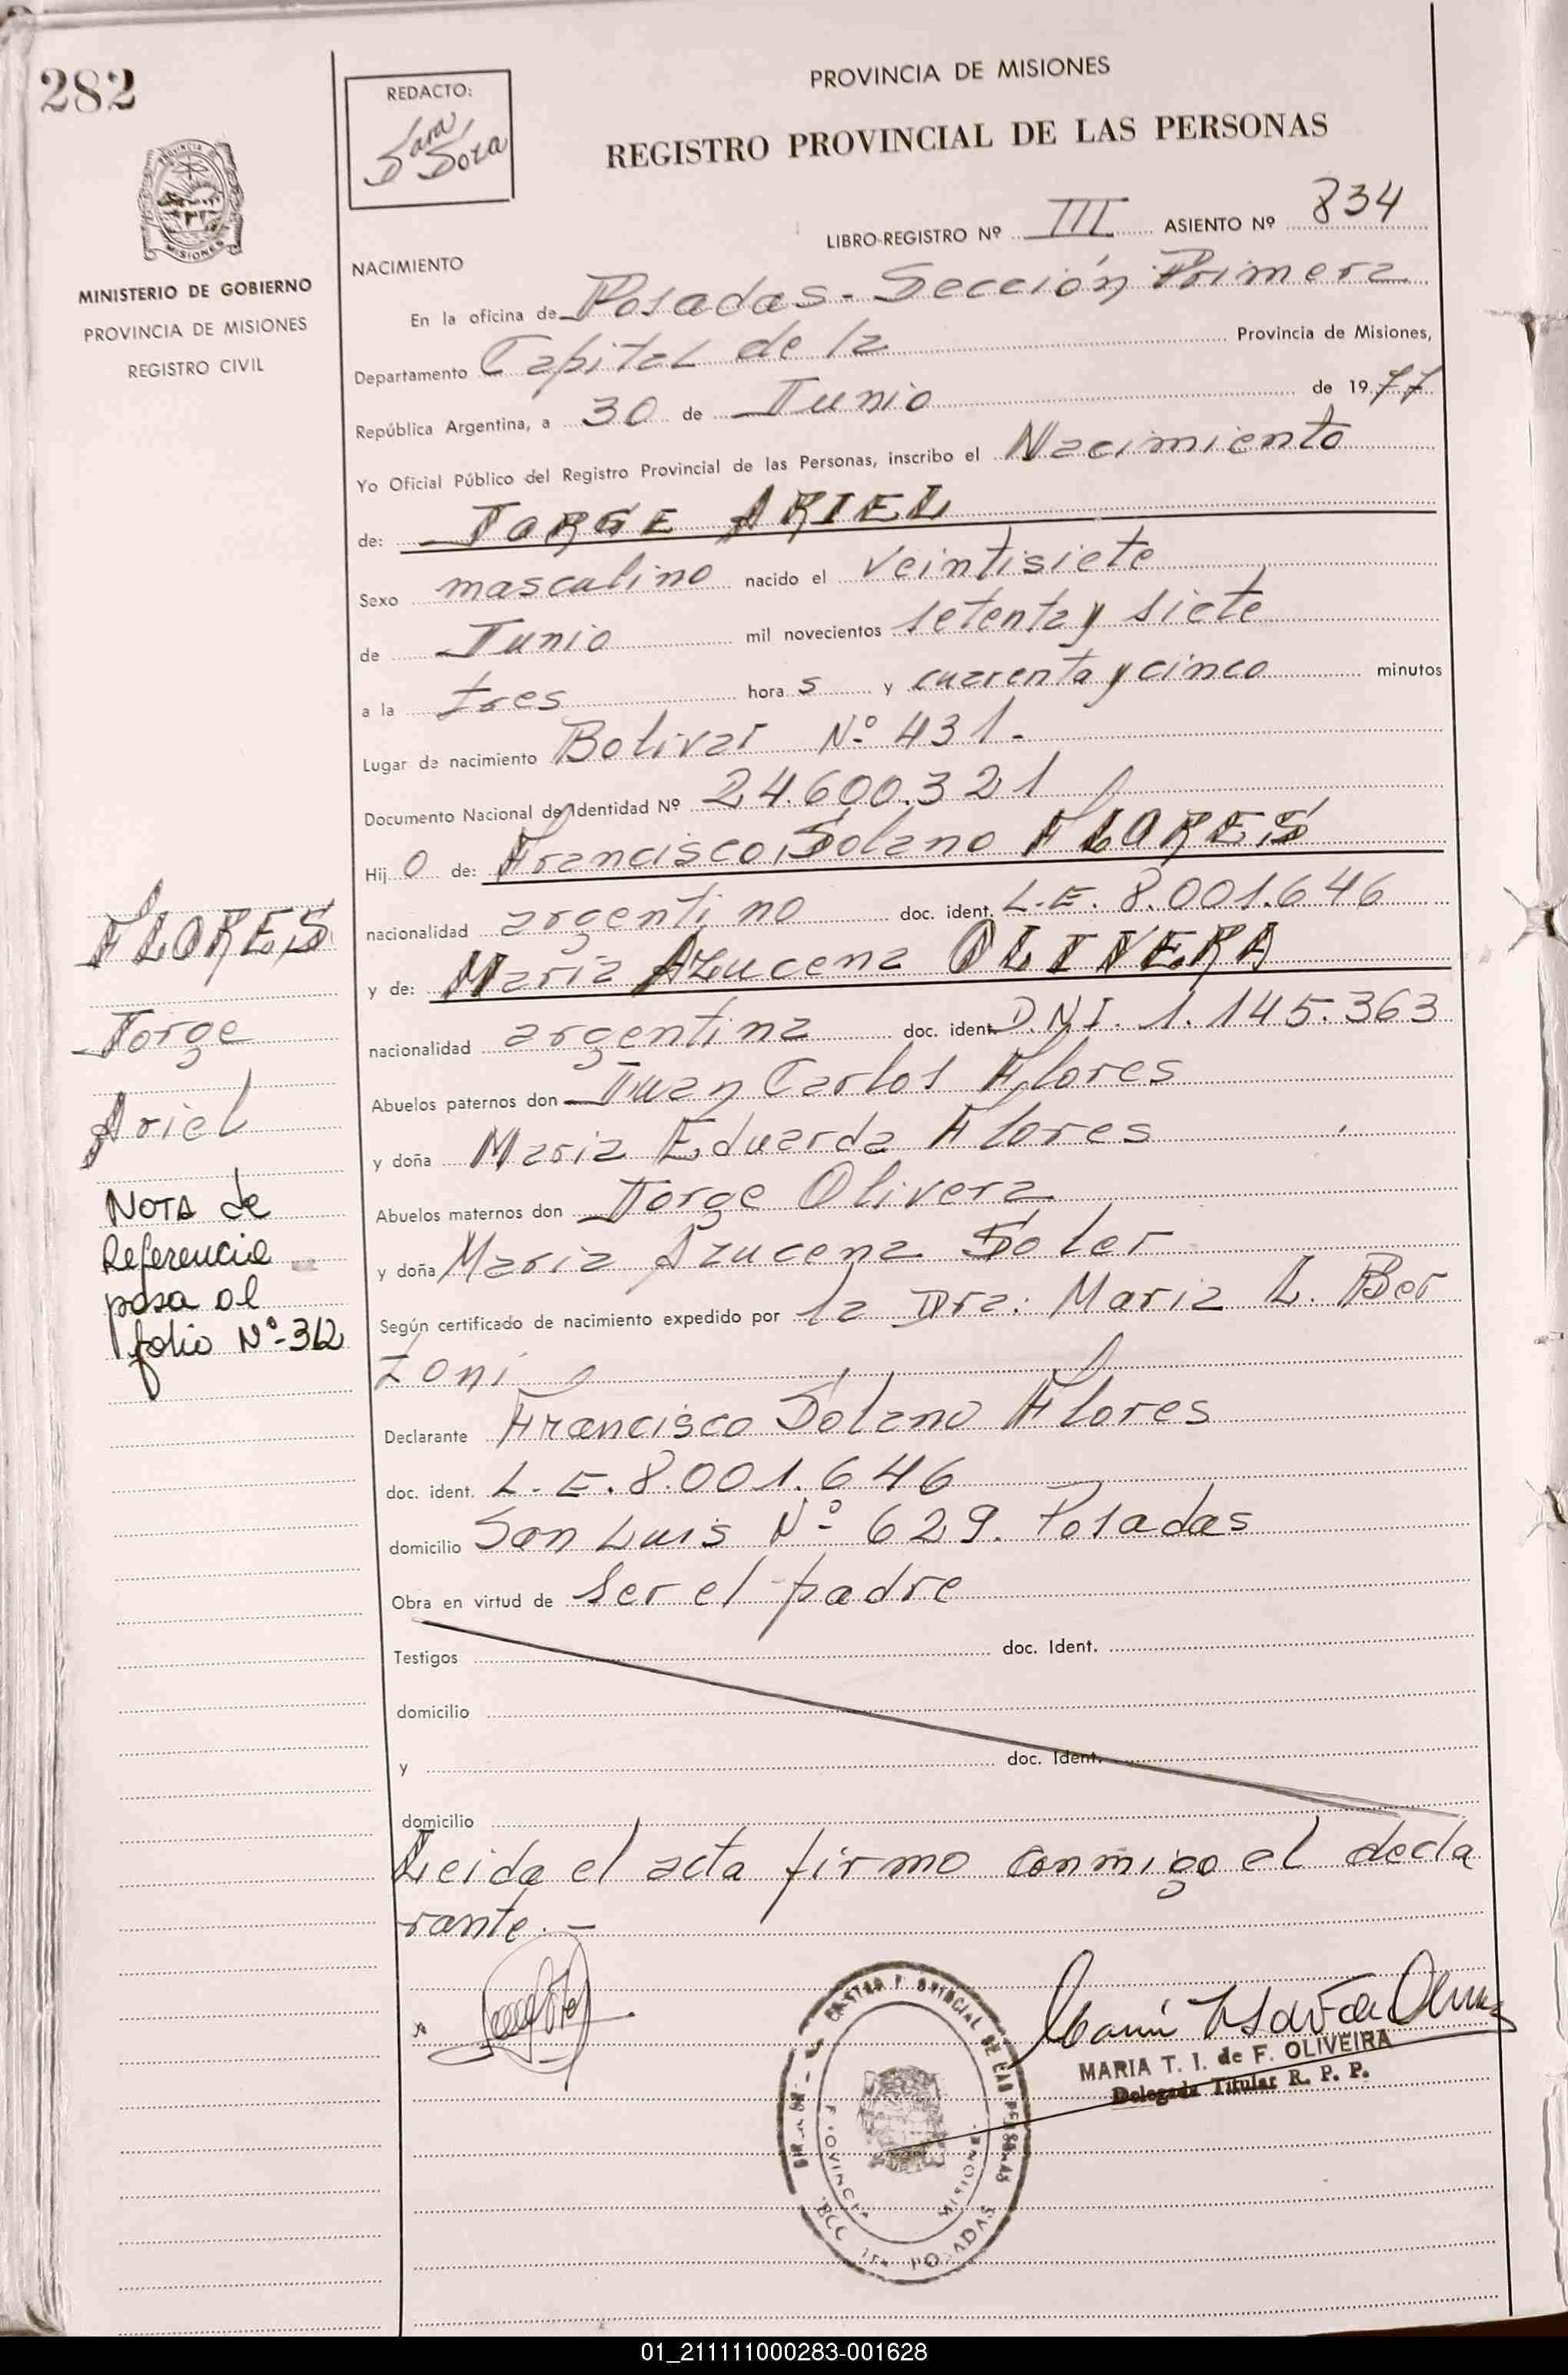 282
REDACTO:
Sara
Sosa
PROVINCIA DE MISIONES
REGISTRO PROVINCIAL DE LAS PERSONAS
LIBRO-REGISTRO Nº III ASIENTO Nº 834
MISIONES
MINISTERIO DE GOBIERNO
PROVINCIA DE MISIONES
REGISTRO CIVIL
NACIMIENTO
En la oficina de Posadas - Sección Primera
Departamento Capital de la Provincia de Misiones,
República Argentina, a 30 de Junio de 1977
Yo Oficial Público del Registro Provincial de las Personas, inscribo el Nacimiento
de: JORGE ARIEL
Sexo masculino nacido el veintisiete
de Junio mil novecientos setenta y siete
a la tres hora s y cuarenta y cinco minutos
Lugar de nacimiento Bolivar Nº 431.-
Documento Nacional de Identidad Nº 24.600.321
Hij o de: Francisco Solano FLORES
nacionalidad argentino doc. ident. L.E. 8.001.646
y de: Maria Azucena OLIVERA
nacionalidad argentina doc. ident. D.N.I. 1.145.363
Abuelos paternos don Juan Carlos Flores
y doña Maria Eduarda Flores
Abuelos maternos don Jorge Olivera
y doña Maria Azucena Soler
Según certificado de nacimiento expedido por la Dra. Maria L. Ber
zoni
Declarante Francisco Solano Flores
doc. ident. L.E. 8.001.646
domicilio San Luis Nº 629. Posadas
Obra en virtud de ser el padre
Testigos doc. Ident.
domicilio
y doc. Ident.
domicilio
Leida el acta firmo conmigo el decla
rante.-
FLORES
Jorge
Ariel
NOTA de
Referencia
pasa al
folio Nº-312
MARIA T. I. de F. OLIVEIRA
Delegada Titular R. P. P.
PROVINCIAL DE LAS PERSONAS
PROVINCIA MISIONES
SECC 1ra POSADAS
01_211111000283-001628